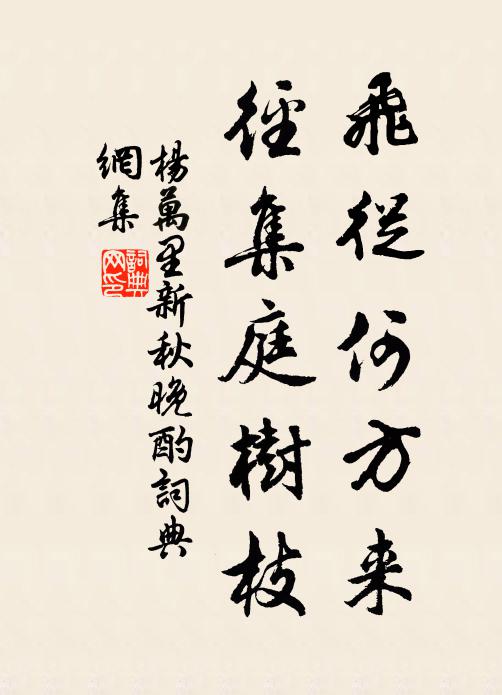 飛從何方来
徑集庭樹枝
楊萬里新秋晚酌詞典
網集
詞典
网印